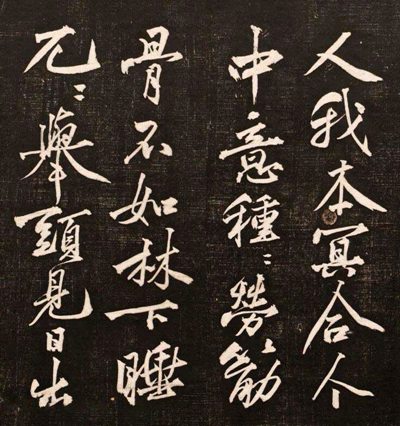 人我本冥合人
中意種〻勞筋
骨不如林下睡
兀〻舉頭見日出